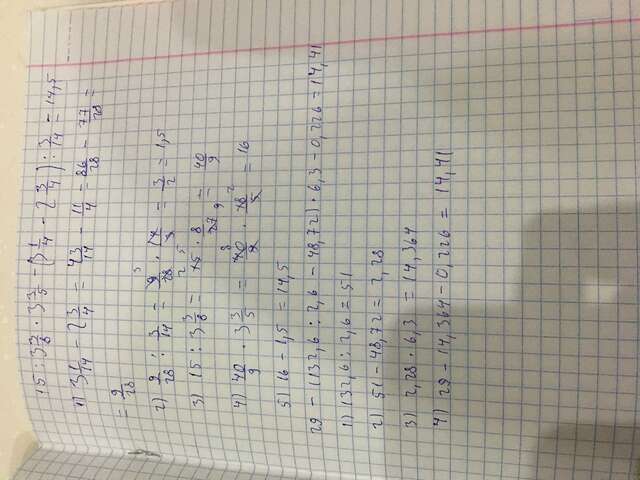 15 : 3 3/8 · 3 3/5 - (3 1/14 - 2 3/4) : 3/14 = 14,5
1) 3 1/14 - 2 3/4 = 43/14 - 11/4 = 86/28 - 77/28 =
= 9/28
2) 9/28 : 3/14 = 9/28 · 14/3 = 3/2 = 1,5
3) 15 : 3 3/8 = 15 · 8/27 = 40/9
4) 40/9 · 3 3/5 = 40/9 · 18/5 = 16
5) 16 - 1,5 = 14,5
29 - (132,6 : 2,6 - 48,72) · 6,3 - 0,226 = 14,41
1) 132,6 : 2,6 = 51
2) 51 - 48,72 = 2,28
3) 2,28 · 6,3 = 14,364
4) 29 - 14,364 - 0,226 = 14,41